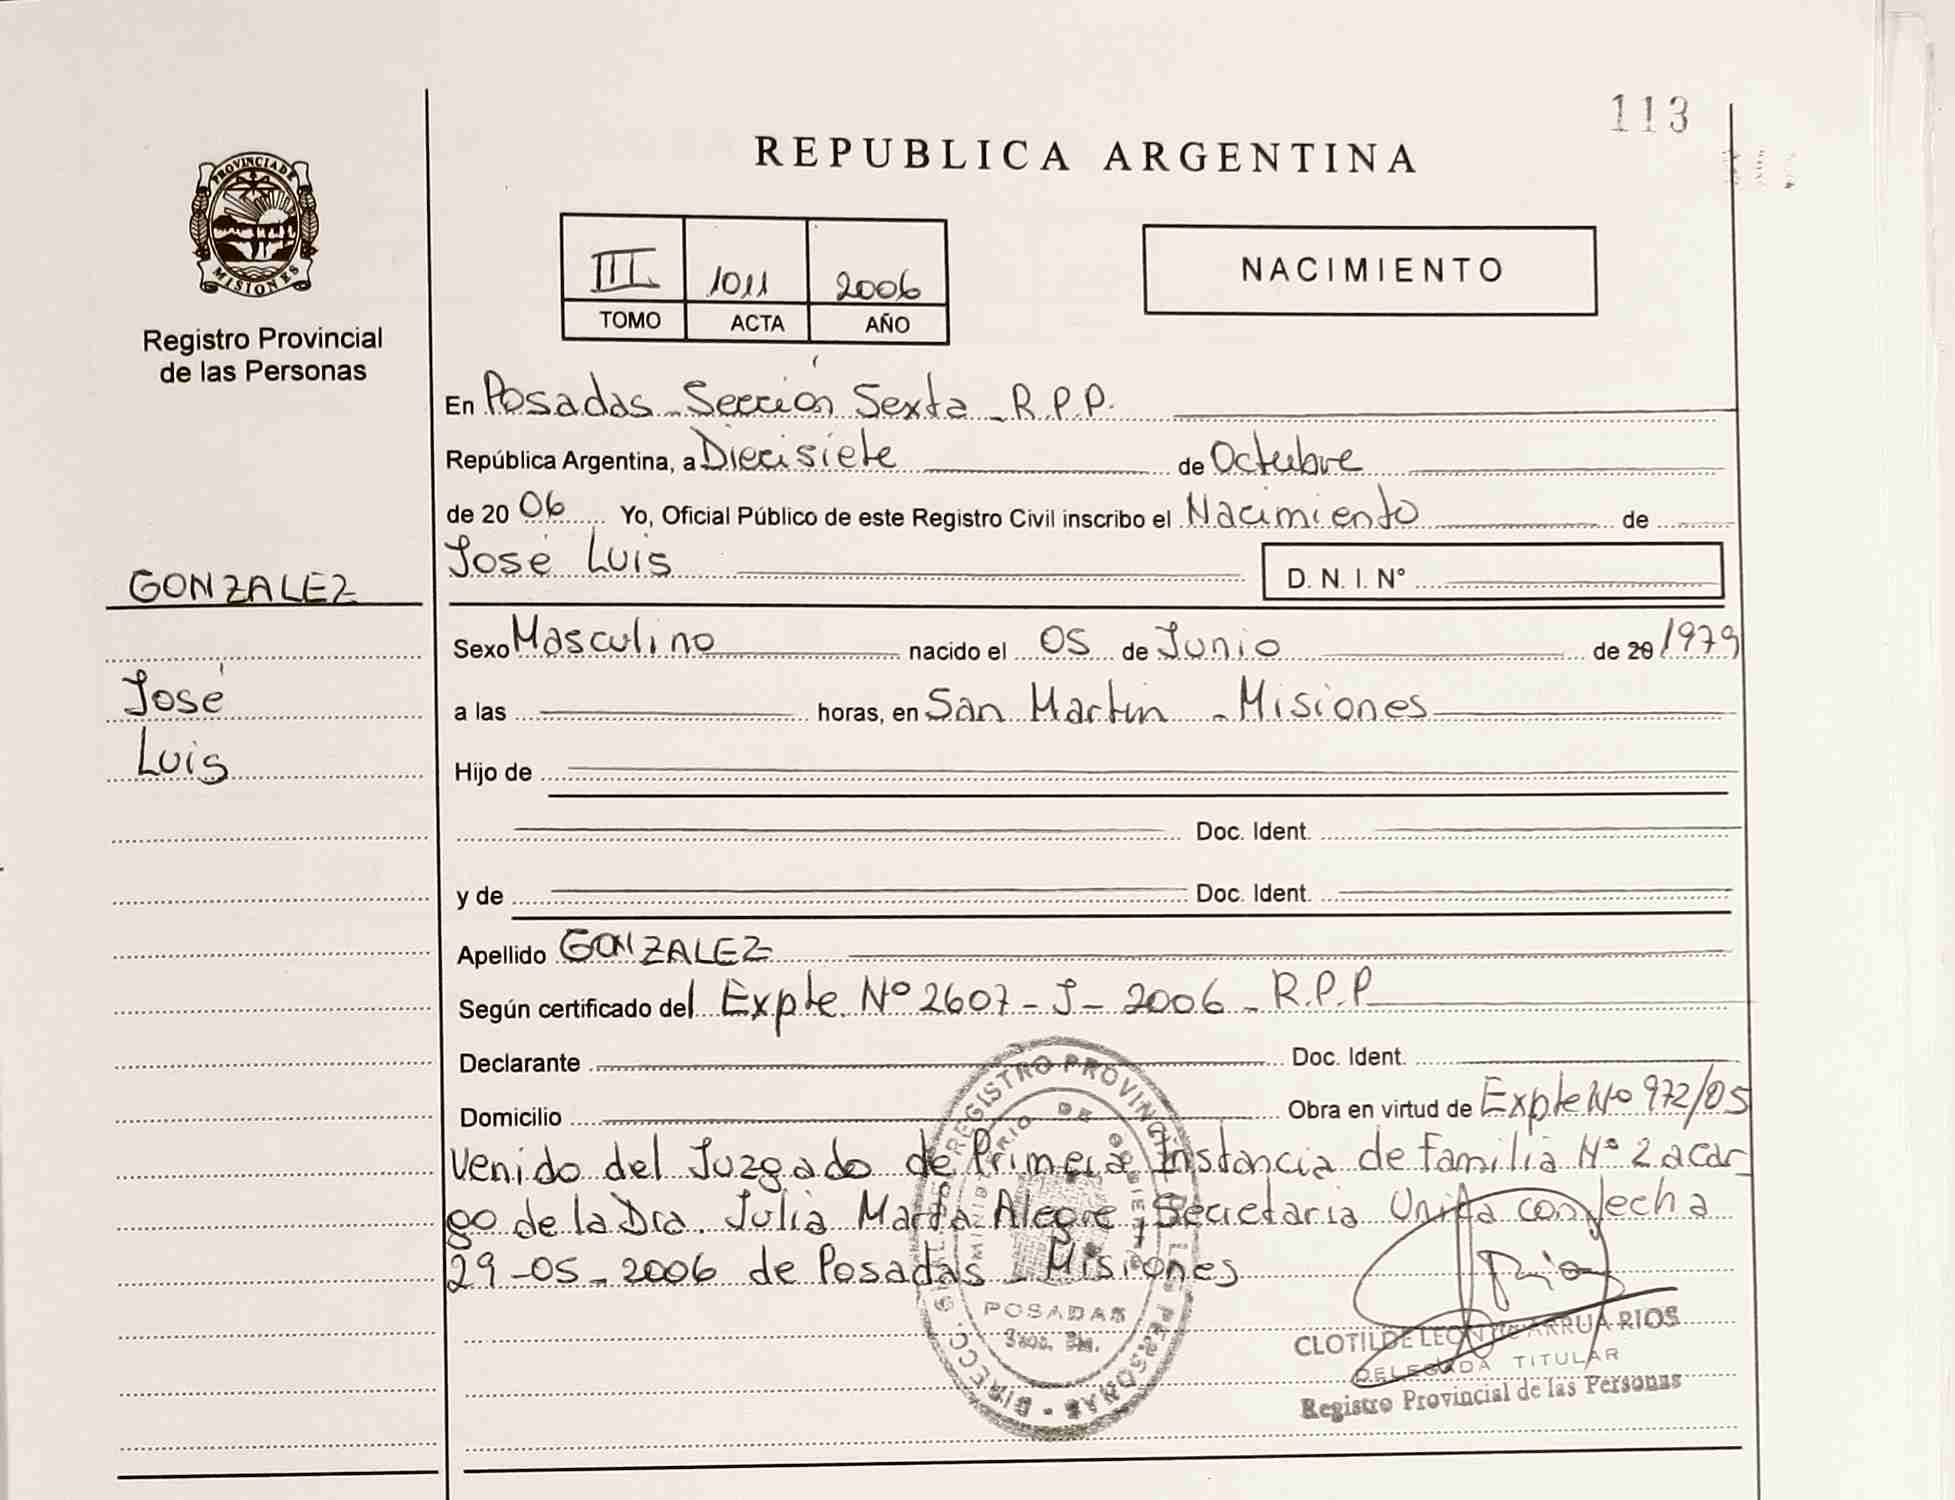 113
REPUBLICA ARGENTINA
PROVINCIA DE
MISIONES
Registro Provincial
de las Personas
III 1011 2006
TOMO ACTA AÑO
NACIMIENTO
En Posadas - Sección Sexta - R.P.P.
República Argentina, a Diecisiete de Octubre
de 20 06 Yo, Oficial Público de este Registro Civil inscribo el Nacimiento de
GONZALEZ
José
Luis
José Luis D. N. I. N°
Sexo Masculino nacido el 05 de Junio de 20 1979
a las horas, en San Martín - Misiones
Hijo de
Doc. Ident.
y de Doc. Ident.
Apellido GONZALEZ
Según certificado del Expte. Nº 2607-J-2006 - R.P.P
Declarante Doc. Ident.
Domicilio Obra en virtud de Expte Nº 972/05
venido del Juzgado de Primera Instancia de Familia Nº 2 a car-
go de la Dra. Julia Marta Alegre, Secretaria Unica con fecha
29-05-2006 de Posadas - Misiones
REGISTRO PROVINCIAL DE LAS PERSONAS
MINISTERIO DE GOBIERNO
POSADAS
CLOTILDE LEON de ARRUA RIOS
DELEGADA TITULAR
Registro Provincial de las Personas